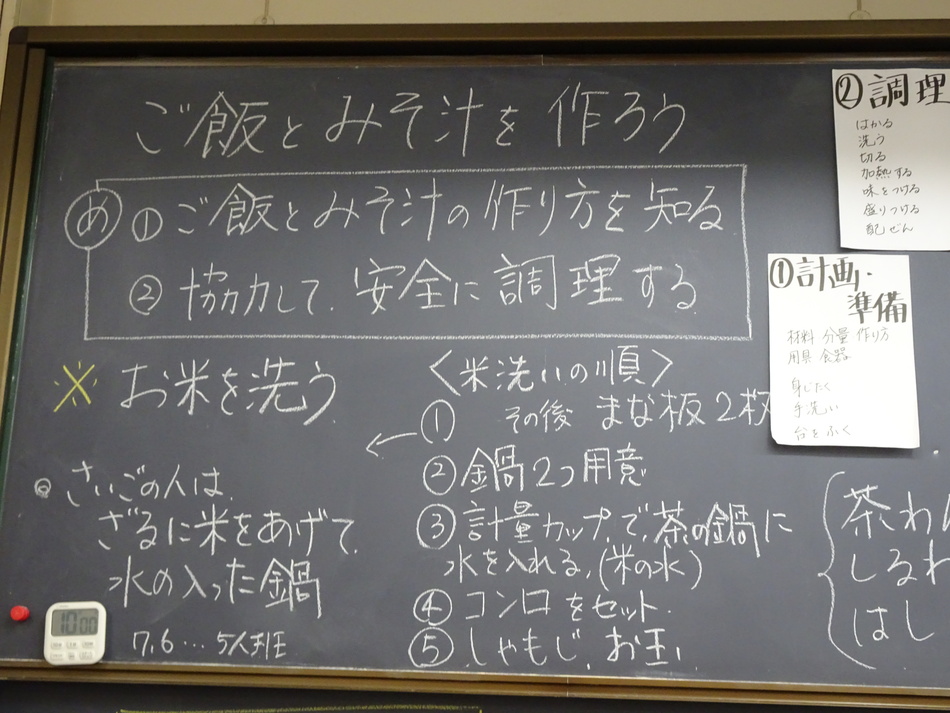 ご飯とみそ汁を作ろう
め ①ご飯とみそ汁の作り方を知る
②協力して、安全に調理する。
※ お米を洗う。
さいごの人は、
ざるに米をあげて、
水の入った鍋
7,6…5人班
10:00
<米洗いの順>
① その後 まな板2枚
②鍋2つ用意
③計量カップで、茶の鍋に
水を入れる。(米の水)
④コンロをセット.
⑤しゃもじ、お玉、
②調理
はかる
洗う
切る
加熱する
味をつける
盛りつける
配ぜん
①計画・
準備
材料 分量 作り方
用具 食器
身じたく
手洗い
台をふく
茶わん
しるわ
はし